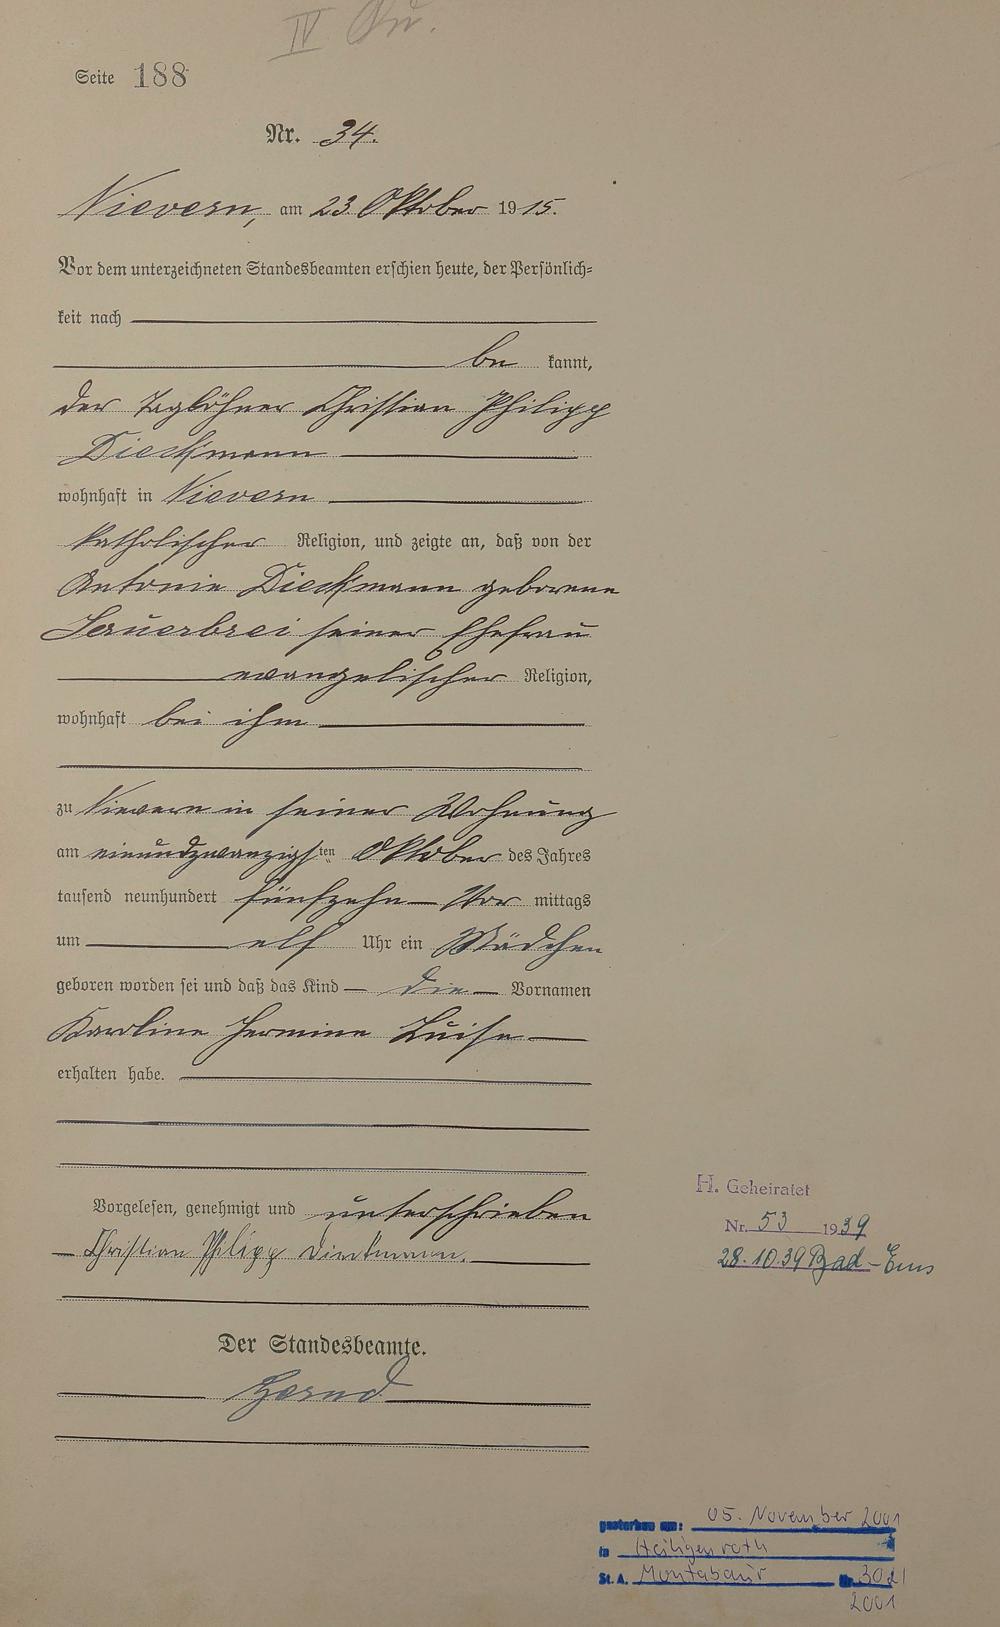 IV
Seite 188
Nr. 34.
Nievern, am 23 Oktober 1915.
Vor dem unterzeichneten Standesbeamten erschien heute, der Persönlich-
keit nach
be kannt,
der Taglöhner Christian Philipp
Dieckmann
wohnhaft in Nievern
katholischer Religion, und zeigte an, daß von der
Antonie Dieckmann geborene
Sauerbrei seiner Ehefrau
evangelischer Religion,
wohnhaft bei ihm
zu Nievern in seiner Wohnung
am einundzwanzigsten Oktober des Jahres
tausend neunhundert fünfzehn Vor mittags
um elf Uhr ein Mädchen
geboren worden sei und daß das Kind die Vornamen
Karoline Hermine Luise
erhalten habe.
Vorgelesen, genehmigt und unterschrieben
Christian Philipp Dieckmann.
Der Standesbeamte.
H. Geheiratet
Nr. 53 1939
28.10.39 Bad-Ems
gestorben am: 05. November 2001
in Heiligenroth
St.A. Montabaur Nr.
2001